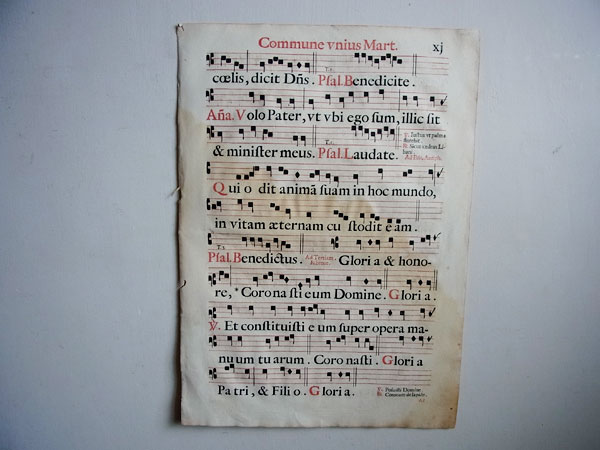 Commune vnius Mart.
xj
cœlis, dicit Dñs. Pſal. Benedicite.
Aña. Volo Pater, vt vbi ego ſum, illic ſit
& miniſter meus. Pſal. Laudate.
Qui o dit animã ſuam in hoc mundo,
in vitam æternam cu ſtodit e am.
Pſal. Benedictus.
Ad Tertiam,
Glori a & hono-
re, * Corona ſti eum Domine. Glori a.
℣. Et conſtituiſti e um ſuper opera ma-
nu um tu arum. Coro naſti. Glori a
Pa tri, & Fili o. Glori a.
℣. Poſuiſti Domine